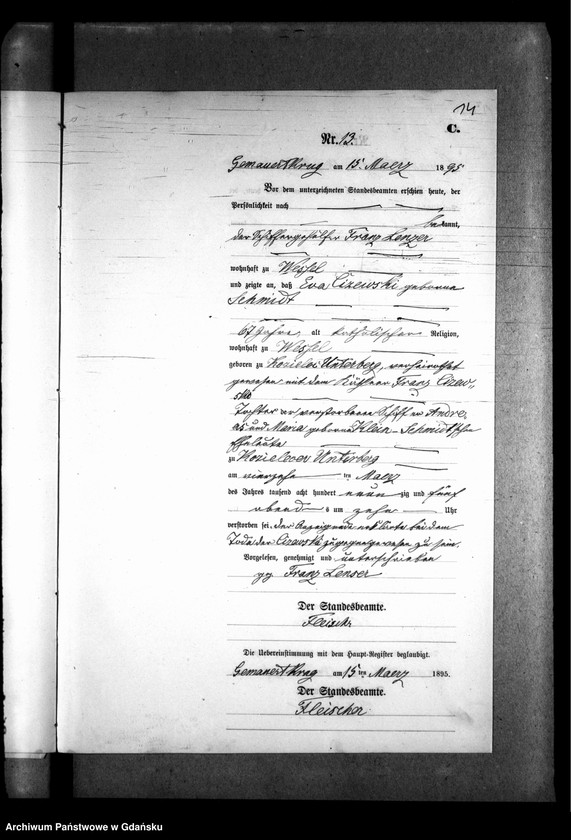 14
C.
Nr. 13.
Gemauert Krug am 15 Maerz 1895
Vor dem unterzeichneten Standesbeamten erschien heute, der
Persönlichkeit nach
bekannt,
der Schiffergehülfe Franz Lenzer
wohnhaft zu Wessel
und zeigte an, daß Eva Cizewski geborne
Schmidt
67 Jahre alt katholischer Religion,
wohnhaft zu Wessel
geboren zu Unterberg, verheirathet
gewesen mit dem Käthner Franz Cizew-
ski
Tochter der verstorbenen Andre-
as und Maria geborne Klein-Schmidt'sche
Eheleute
zu Unterberg
am vierzehn ten Maerz
des Jahres tausend acht hundert neun zig und fünf
abend s um zehn Uhr
verstorben sei, der Anzeigende erklärte bei dem
Tode der Cizewski zugegen gewesen zu sein.
Vorgelesen, genehmigt und unterschrieben
gez Franz Lenser
Der Standesbeamte.
Fleischer
Die Uebereinstimmung mit dem Haupt-Register beglaubigt.
Gemauert Krug am 15 ten Maerz 1895.
Der Standesbeamte.
Fleischer
Archiwum Państwowe w Gdańsku